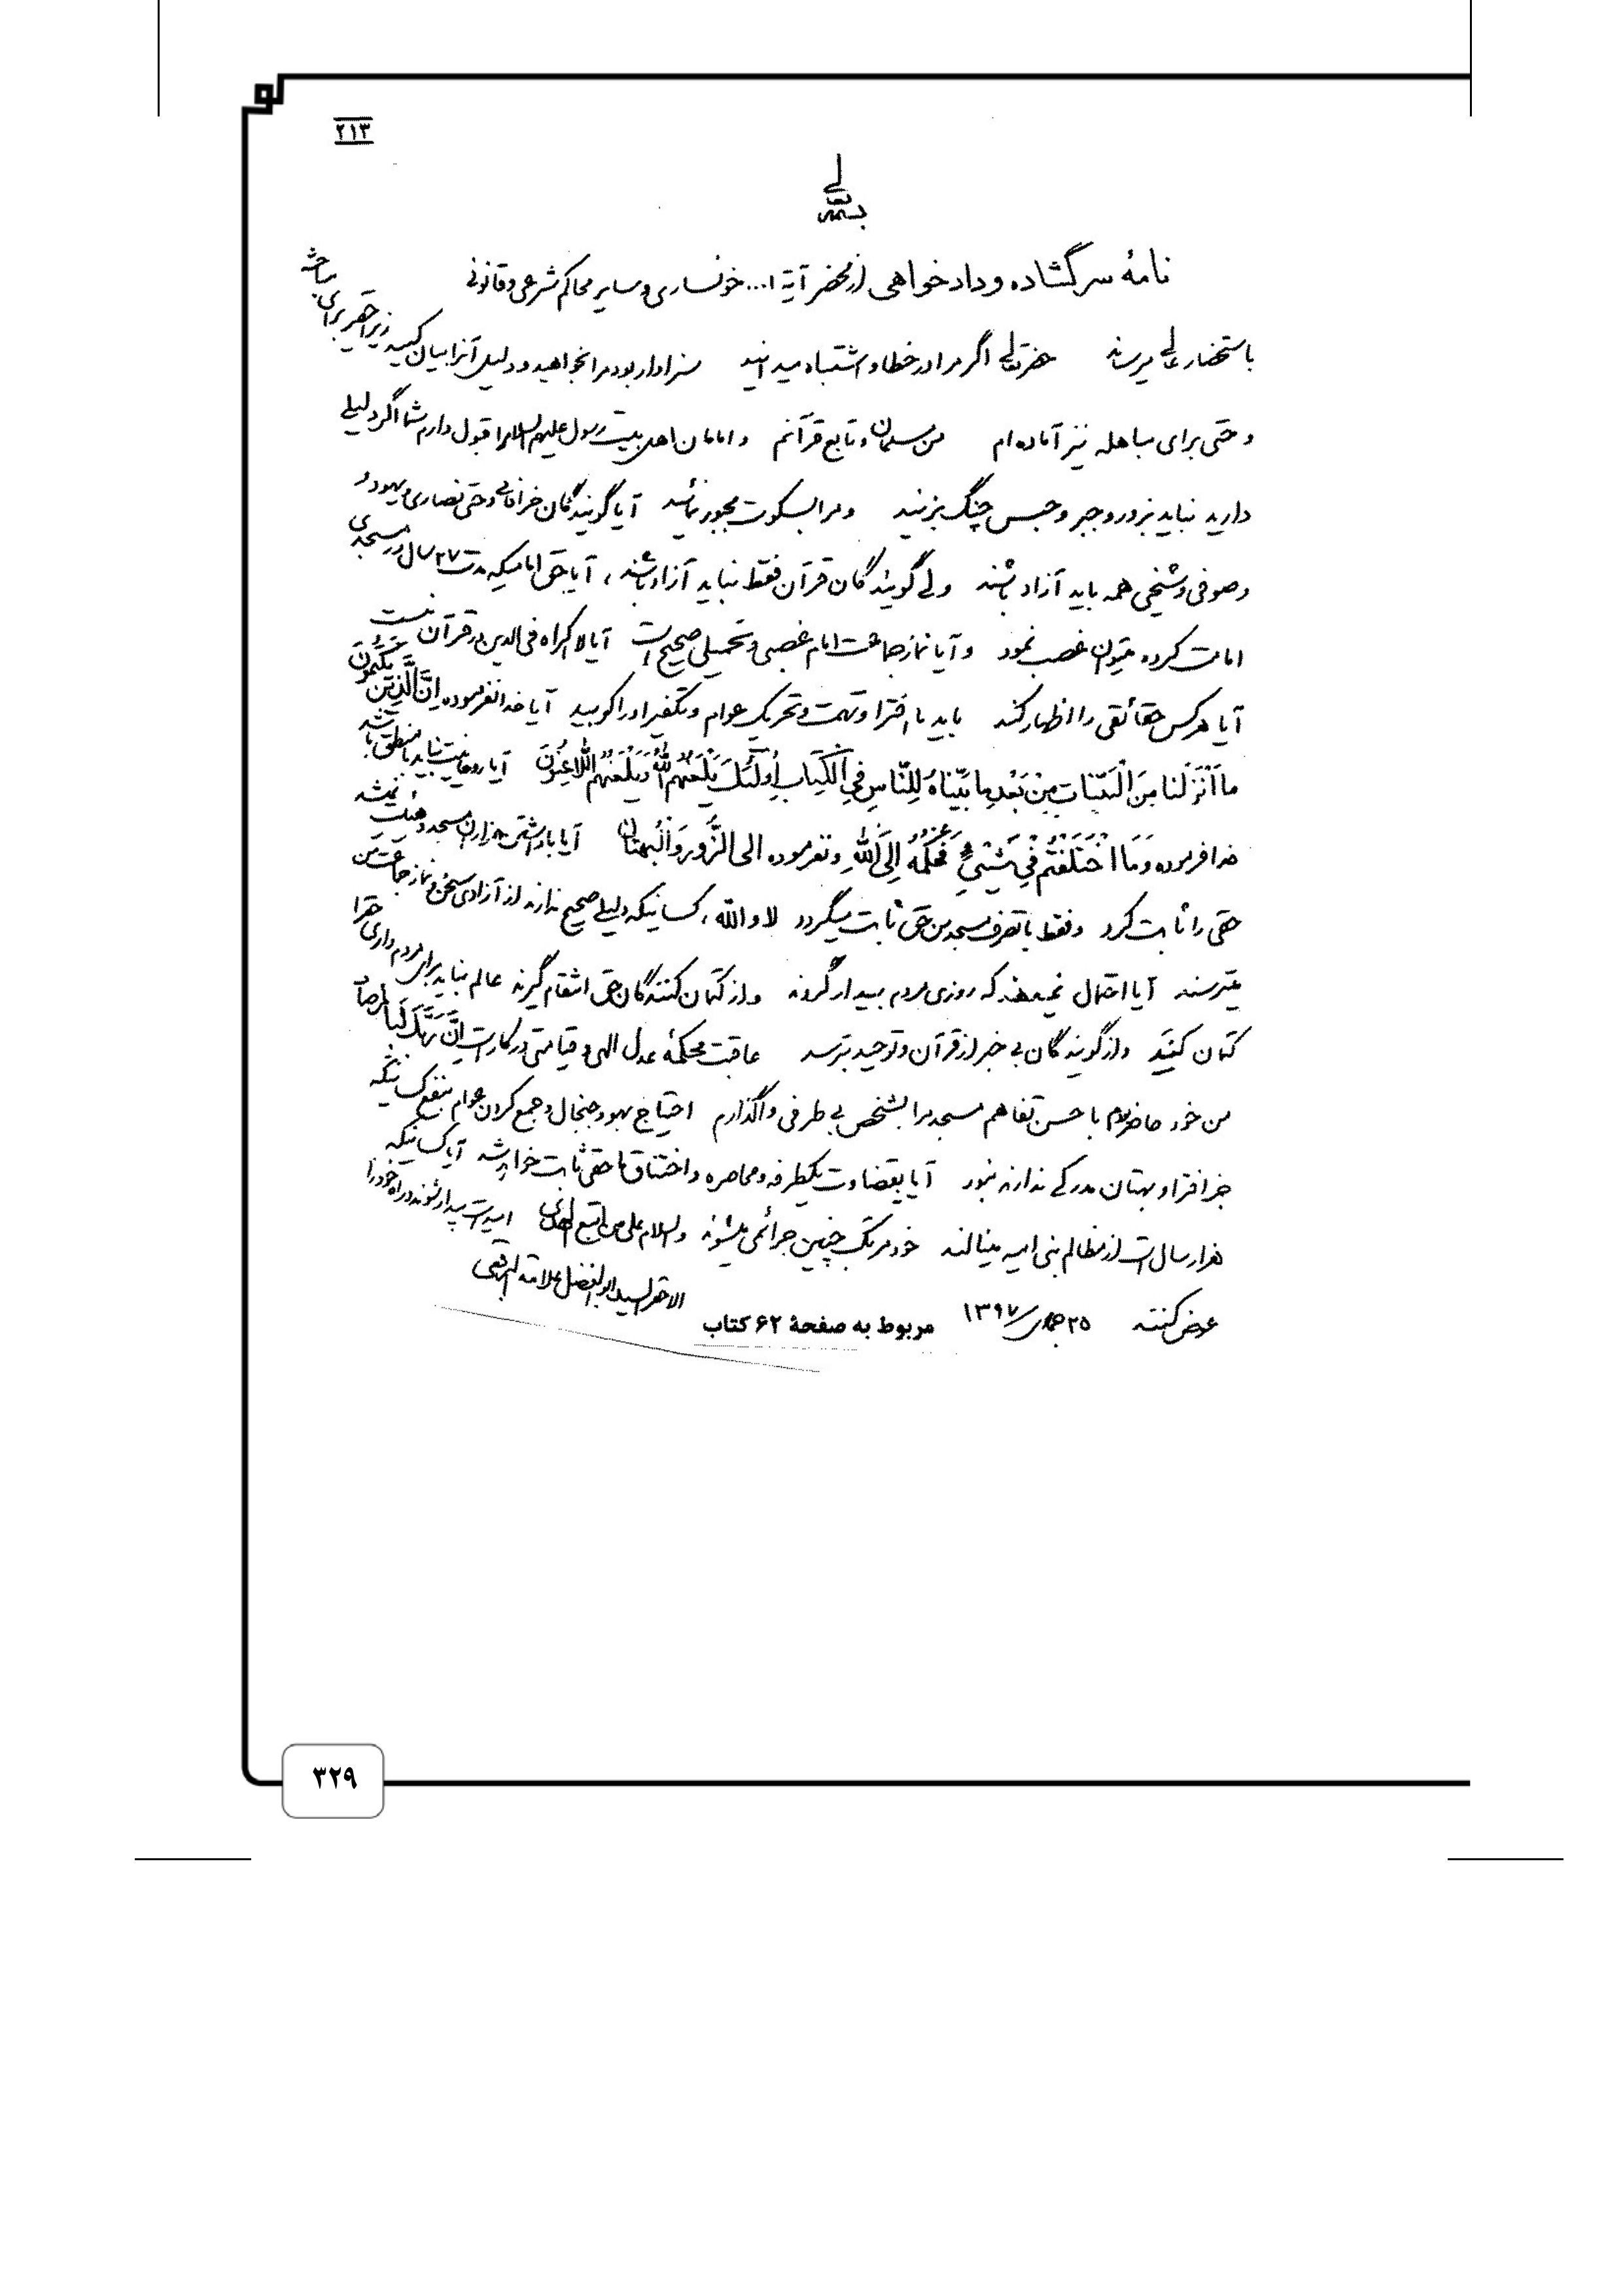 ۲۱۳
بسمه تعالی
نامهٔ سرگشاده و دادخواهی از محضر آیة ا... خونساری و سایر محاکم شرعی و قانونی
باستحضار عالی میرساند حضرتعالی اگر مرا در خطا و اشتباه میدانید سزاوار بود مرا بخواهید و دلیل آنرا بیان کنید زیرا حقیر برای مباحثه
و حتی برای مباهله نیز آماده‌ام من مسلمان و تابع قرآنم و امامان اهل بیت رسول علیهم السلام را قبول دارم شما اگر دلیلی
دارید نباید بزور و جبر و حبس چنگ بزنید و مرا بسکوت مجبور نمائید آیا گویندگان خرافاتی و حتی نصاری و یهود و
و صوفی و شیخی همه باید آزاد باشند ولی گویندگان قرآن فقط نباید آزاد باشند، آیا حق امامیکه مدت ۲۷ سال در مسجدی
امامت کرده میتوان غصب نمود و آیا نماز جماعت امام غصبی و تحمیلی صحیح است آیا لا اکراه فی الدین در قرآن نیست
آیا هر کس حقائقی را اظهار کند باید با افترا و تهمت و تحریک عوام و تکفیر او را کوبید آیا خدا نفرموده اِنَّ الَّذینَ یَکْتُمُونَ
ما اَنْزَلْنا مِنَ الْبَیِّناتِ مِنْ بَعْدِ ما بَیَّنّاهُ لِلنّاسِ فِی الْکِتابِ اُولٰئِکَ یَلْعَنُهُمُ اللهُ وَ یَلْعَنُهُمُ اللّاعِنُونَ آیا روحانیت نباید با منطق باشد
خدا فرموده وَ مَا اخْتَلَفْتُمْ فی شَیْئٍ فَحُکْمُهُ اِلَی اللهِ و نفرموده الی الزُّورِ وَ الْبُهتان آیا با داشتن هزاران مسجد و هیئت نمیشد
حقی را ثابت کرد و فقط با تصرف مسجد من حق ثابت میگردد لا و الله، کسانیکه دلیلی صحیح ندارند از آزادی سخن و نماز جماعت من
میترسند آیا احتمال نمیدهند که روزی مردم بیدار گردند و از کتمان کنندگان حق انتقام گیرند عالم نباید برای مردم داری حق را
کتمان کند و از گویندگان بی خبر از قرآن و توحید بترسد عاقبت محکمهٔ عدل الهی و قیامتی در کار است اِنَّ رَبَّکَ لَبِالْمِرصاد
من خود حاضر بودم با حسن تفاهم مسجد را بشخص بی طرفی واگذارم احتیاج بهو و جنجال و جمع کردن عوام بنفع کسانیکه
جز افترا و بهتان مدرکی ندارند نبود آیا بقضاوت یکطرفه و محاصره و اختناق ما حقی ثابت خواهد شد آیا کسانیکه
هزار سال است از مظالم بنی امیه مینالند خود مرتکب چنین جرائمی میشوند والسلام علی من اتبع الهدی امید است بیدار شوند و راه خود را
عوض کنند ۲۵ جمادی ۱۳۹۷ الاحقر السید ابوالفضل علامه البرقعی
مربوط به صفحهٔ ۶۲ کتاب
۳۲۹